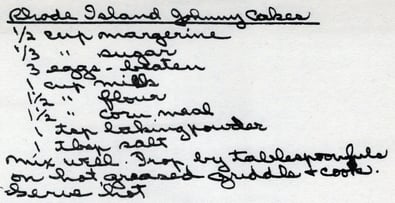 Rhode Island Johnny Cakes
1/2 cup margerine
1/3 " sugar
3 eggs - beaten
1 cup milk
1 1/2 " flour
1 1/2 " corn meal
1 tsp baking powder
1 tbsp salt
Mix well. Drop by tablespoonfuls
on hot greased griddle + cook.
Serve hot